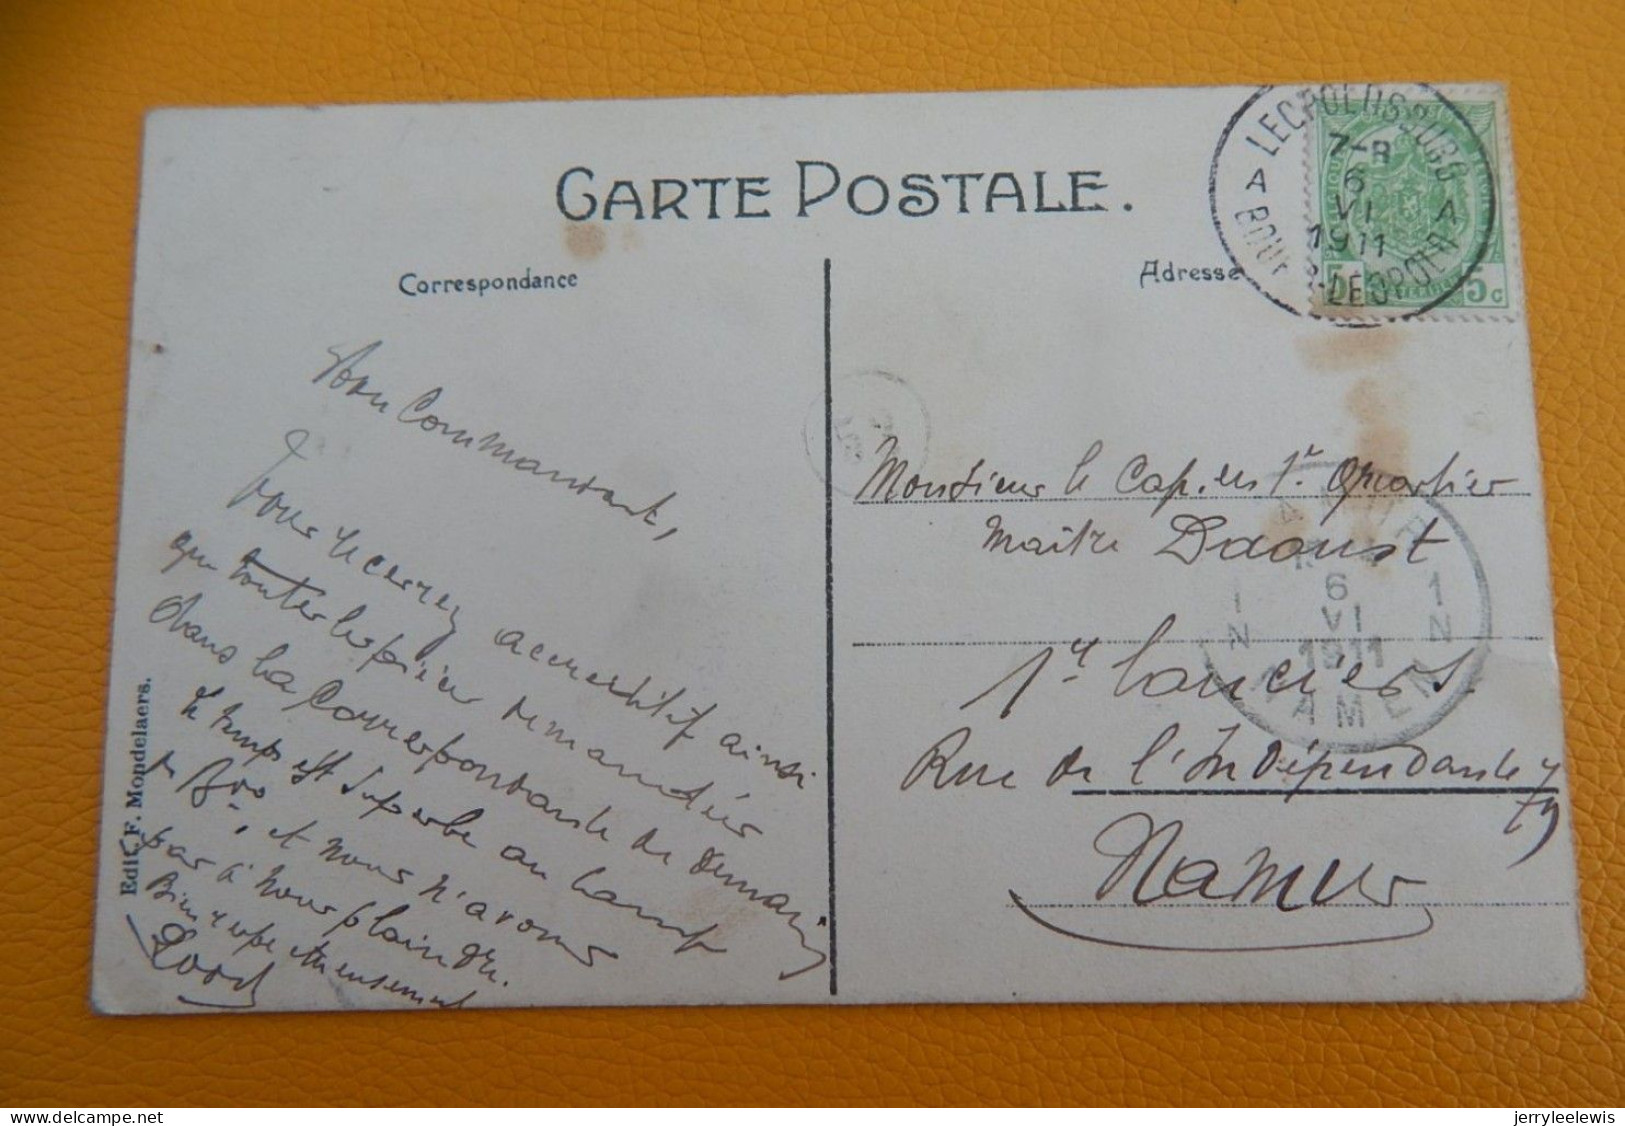 CARTE POSTALE.
Correspondance
Adresse
LEOPOLDSBURG
7-8
A 6 A
VI
1911
BOURG-LEOPOLD
5 5c
Mon Commandant,
Vous recevrez accréditif ainsi
que toutes les pièces demandées
dans la correspondance de demain
le temps est superbe au camp
de Bvoo, et nous n'avons
pas à nous plaindre.
Bien respectueusement
Monsieur le Cap. en 1r Quartier
Maître Daoust
1er lanciers
Rue de l'Indépendance 79
Namur
NAMUR
6
VI
1911
1 N 1 N
NAMEN
Edit. F. Mondelaers.
delcampe.net
jerryleelewis